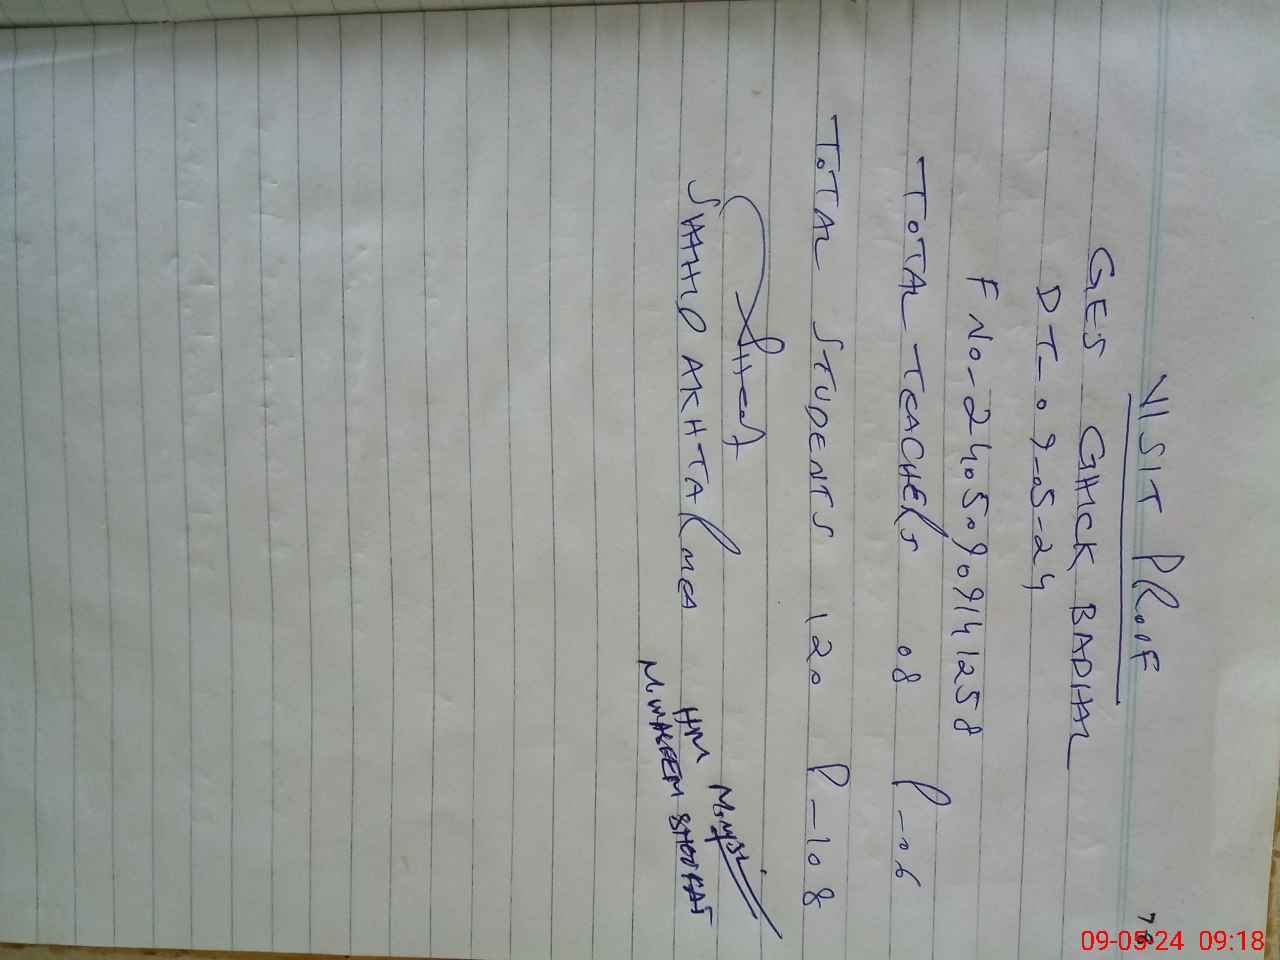 78
VISIT PROOF
GES GHCK BADHAL
DT-09-05-24
F No-24050909141258
TOTAL TEACHERS 08 P-06
TOTAL STUDENTS 120 P-108
SHAHID AKHTAR MEA
HM
M. WASEEM SHOUKAT
09-05-24 09:18